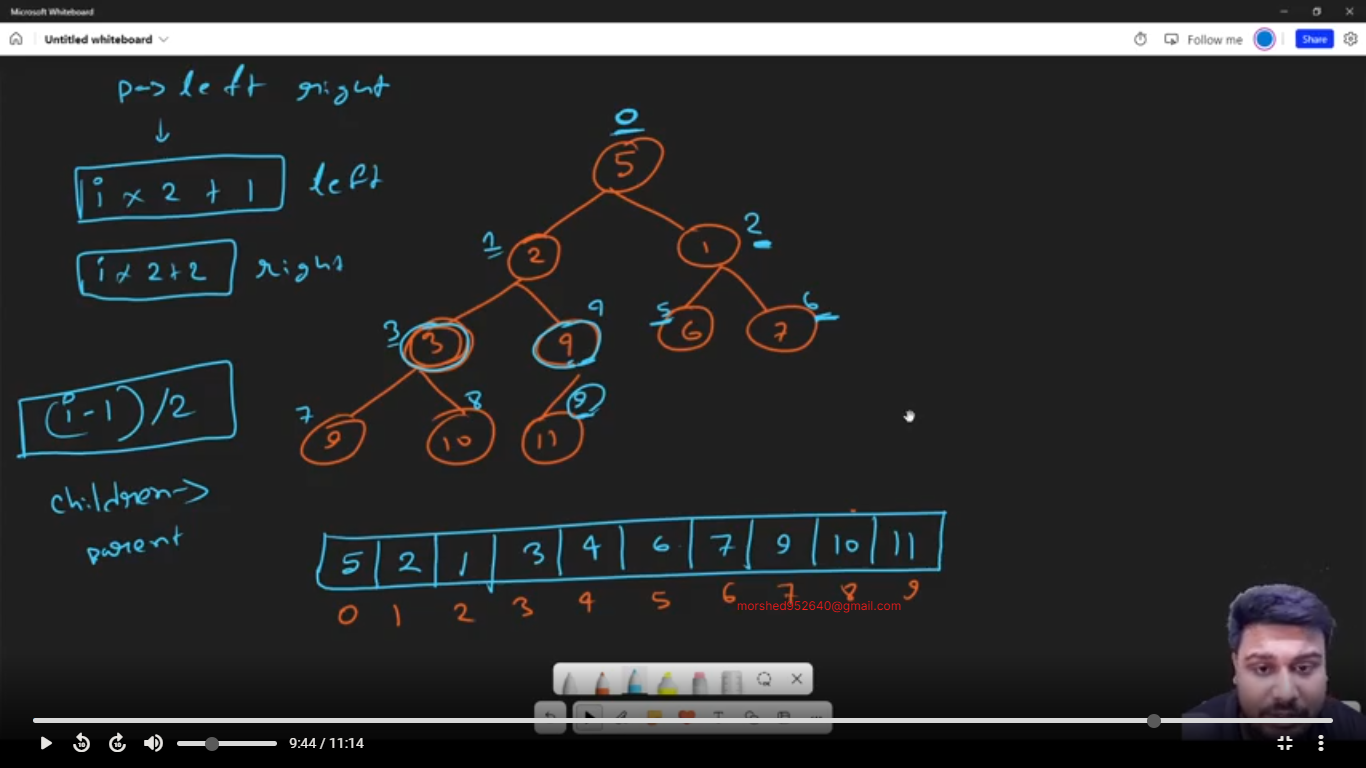 Microsoft Whiteboard
Untitled whiteboard
Follow me
Share
p-> left right
↓
i × 2 + 1 left
i × 2 + 2 right
(i - 1) / 2
children ->
parent
0
5
1
2
2
1
3
3
4
4
5
6
6
7
7
9
8
10
9
11
5 2 1 3 4 6 7 9 10 11
0 1 2 3 4 5 6 7 8 9
morshed952640@gmail.com
10
10
9:44 / 11:14